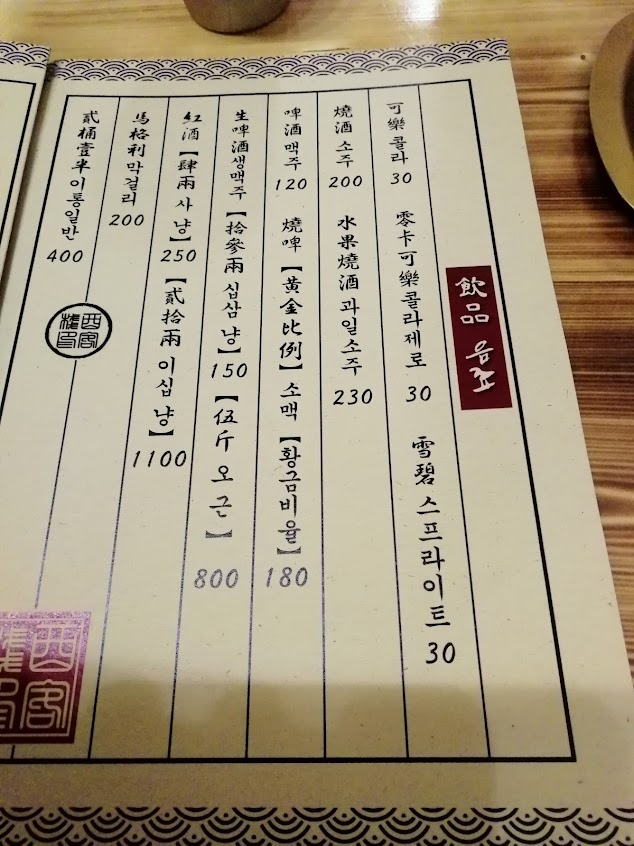 飲品 음료
可樂 콜라 30 零卡可樂 콜라제로 30 雪碧 스프라이트 30
燒酒 소주 200 水果燒酒 과일소주 230
啤酒 맥주 120 燒啤【黃金比例】소맥【황금비율】180
生啤酒 생맥주【拾參兩 십삼 냥】150【伍斤 오 근】800
紅酒【肆兩 사 냥】250【貳拾兩 이십 냥】1100
馬格利 막걸리 200
貳桶壹半 이통일반 400